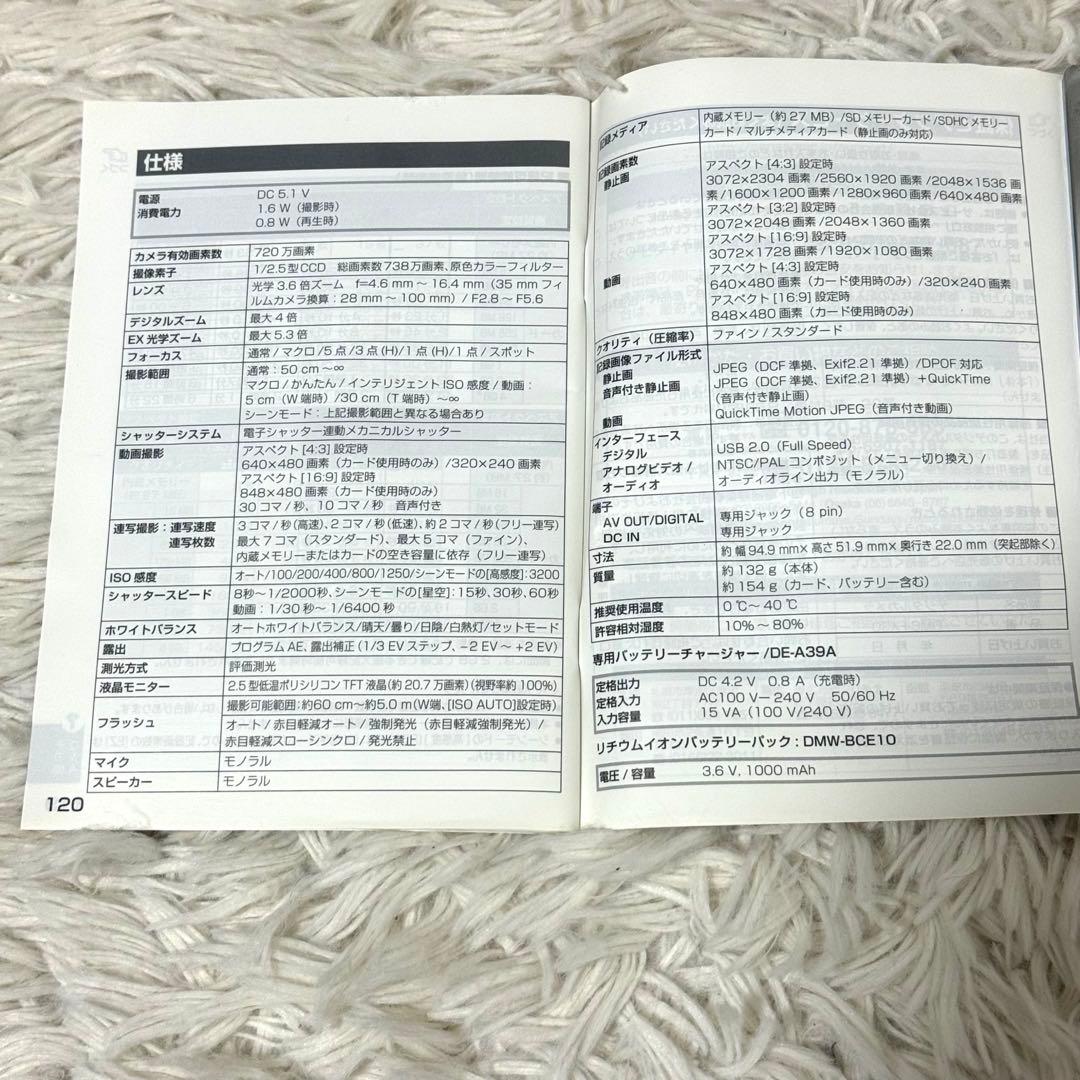 仕様
電源 DC 5.1 V
消費電力 1.6 W（撮影時）
0.8 W（再生時）
カメラ有効画素数 720万画素
撮像素子 1/2.5型CCD 総画素数738万画素、原色カラーフィルター
レンズ 光学 3.6 倍ズーム f=4.6 mm ～ 16.4 mm（35 mm フィ
ルムカメラ換算：28 mm～ 100 mm）/ F2.8 ～ F5.6
デジタルズーム 最大 4 倍
EX 光学ズーム 最大 5.3 倍
フォーカス 通常 / マクロ /5 点 /3 点 (H)/1 点 (H)/1 点 / スポット
撮影範囲 通常：50 cm～∞
マクロ / かんたん / インテリジェント ISO 感度 / 動画：
5 cm（W 端時）/30 cm（T 端時）～∞
シーンモード：上記撮影範囲と異なる場合あり
シャッターシステム 電子シャッター連動メカニカルシャッター
動画撮影 アスペクト [4:3] 設定時
640×480 画素（カード使用時のみ）/320×240 画素
アスペクト [16:9] 設定時
848×480 画素（カード使用時のみ）
30 コマ / 秒、10 コマ / 秒 音声付き
連写撮影：連写速度 3 コマ / 秒（高速）、2 コマ / 秒（低速）、約 2 コマ / 秒（フリー連写）
連写枚数 最大 7 コマ（スタンダード）、最大 5 コマ（ファイン）、
内蔵メモリーまたはカードの空き容量に依存（フリー連写）
ISO 感度 オート/100/200/400/800/1250/シーンモードの[高感度]：3200
シャッタースピード 8秒～1/2000秒、シーンモードの[星空]：15秒、30秒、60秒
動画：1/30 秒～ 1/6400 秒
ホワイトバランス オートホワイトバランス/晴天/曇り/日陰/白熱灯/セットモード
露出 プログラム AE、露出補正（1/3 EV ステップ、－2 EV ～ ＋2 EV）
測光方式 評価測光
液晶モニター 2.5型低温ポリシリコンTFT液晶（約20.7万画素）（視野率約100%）
フラッシュ 撮影可能範囲：約60 cm～約5.0 m（W端、[ISO AUTO]設定時）
オート / 赤目軽減オート / 強制発光（赤目軽減強制発光）/
赤目軽減スローシンクロ / 発光禁止
マイク モノラル
スピーカー モノラル
120
記録メディア 内蔵メモリー（約 27 MB）/SD メモリーカード/SDHC メモリー
カード / マルチメディアカード（静止画のみ対応）
記録画素数
静止画 アスペクト [4:3] 設定時
3072×2304 画素 /2560×1920 画素 /2048×1536 画
素 /1600×1200 画素 /1280×960 画素 /640×480 画素
アスペクト [3:2] 設定時
3072×2048 画素 /2048×1360 画素
アスペクト [16:9] 設定時
3072×1728 画素 /1920×1080 画素
動画 アスペクト [4:3] 設定時
640×480 画素（カード使用時のみ）/320×240 画素
アスペクト [16:9] 設定時
848×480 画素（カード使用時のみ）
クオリティ（圧縮率） ファイン / スタンダード
記録画像ファイル形式
静止画 JPEG（DCF 準拠、Exif2.21 準拠）/DPOF 対応
音声付き静止画 JPEG（DCF 準拠、Exif2.21 準拠）+QuickTime
（音声付き静止画）
動画 QuickTime Motion JPEG（音声付き動画）
インターフェース
デジタル USB 2.0（Full Speed）
アナログビデオ / NTSC/PAL コンポジット（メニュー切り換え）/
オーディオ オーディオライン出力（モノラル）
端子
AV OUT/DIGITAL 専用ジャック（8 pin）
DC IN 専用ジャック
寸法 約 幅 94.9 mm× 高さ 51.9 mm× 奥行き 22.0 mm（突起部除く）
質量 約 132 g（本体）
約 154 g（カード、バッテリー含む）
推奨使用温度 0 ℃～ 40 ℃
許容相対湿度 10%～ 80%
専用バッテリーチャージャー /DE-A39A
定格出力 DC 4.2 V 0.8 A（充電時）
定格入力 AC100 V― 240 V 50/60 Hz
入力容量 15 VA（100 V/240 V）
リチウムイオンバッテリーパック：DMW-BCE10
電圧 / 容量 3.6 V, 1000 mAh